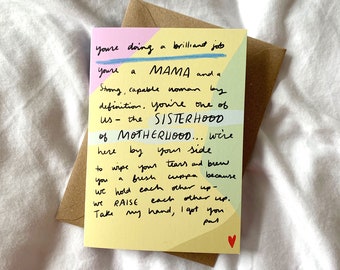 you're doing a brilliant job
you're a MAMA and a
strong, capable woman by
definition. you're one of
us - the SISTERHOOD
of MOTHERHOOD... we're
here by your side
to wipe your tears and brew
you a fresh cuppa because
we hold each other up -
we RAISE each other up.
Take my hand, I got you